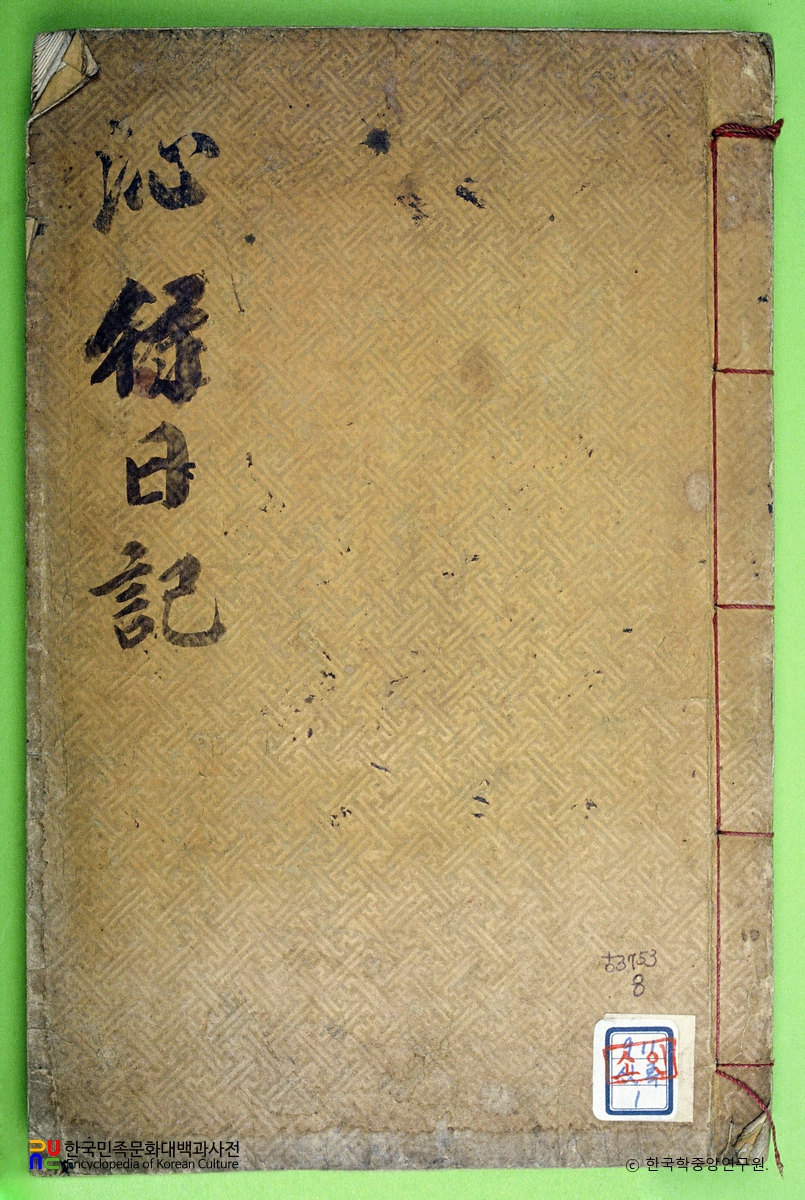 沁得日記
古3753
8
1
한국민족문화대백과사전
Encyclopedia of Korean Culture
© 한국학중앙연구원.